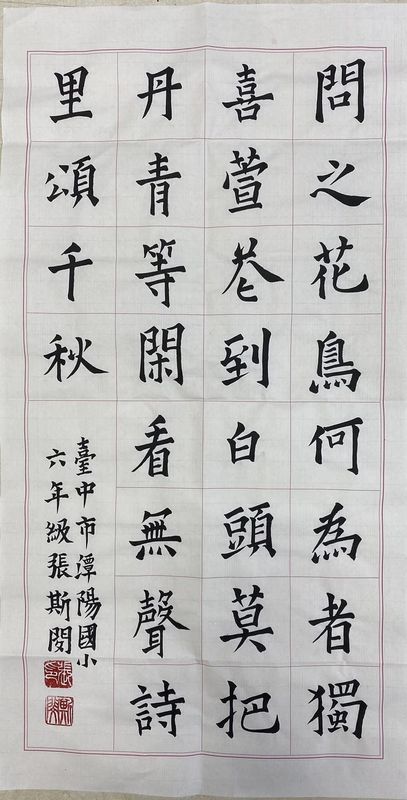 問之花鳥何為者獨
喜萱芲到白頭莫把
丹青等閑看無聲詩
里頌千秋
臺中市潭陽國小
六年級張斯閔